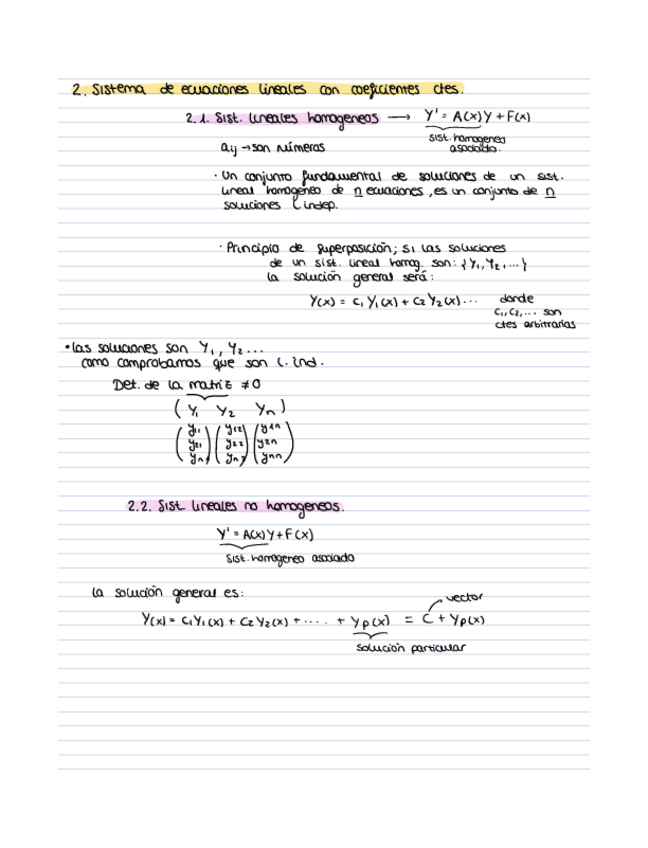 2. Sistema de ecuaciones lineales con coeficientes ctes.
2.1. Sist. lineales homogeneos → Y' = A(x)Y + F(x)
sist. homogeneo
asociado.
aij → son números
· Un conjunto fundamental de soluciones de un sist.
lineal homogéneo de n ecuaciones, es un conjunto de n
soluciones l indep.
· Principio de superposición; si las soluciones
de un sist. lineal homog. son: {Y1, Y2, ...}
la solución general será:
Y(x) = C1 Y1(x) + C2 Y2(x) ... donde
C1, C2, ... son
ctes arbitrarias
• las soluciones son Y1, Y2 ...
como comprobamos que son l. ind.
Det. de la matriz ≠ 0
( Y1 Y2 Yn )
(y11) (y12) (y1n)
(y21) (y22) (y2n)
(yn1) (yn2) (ynn)
2.2. Sist. lineales no homogeneos.
Y' = A(x)Y + F(x)
Sist. homogeneo asociado
la solución general es:
vector
Y(x) = C1Y1(x) + C2 Y2(x) + .... + Yp(x) = C + Yp(x)
solución particular